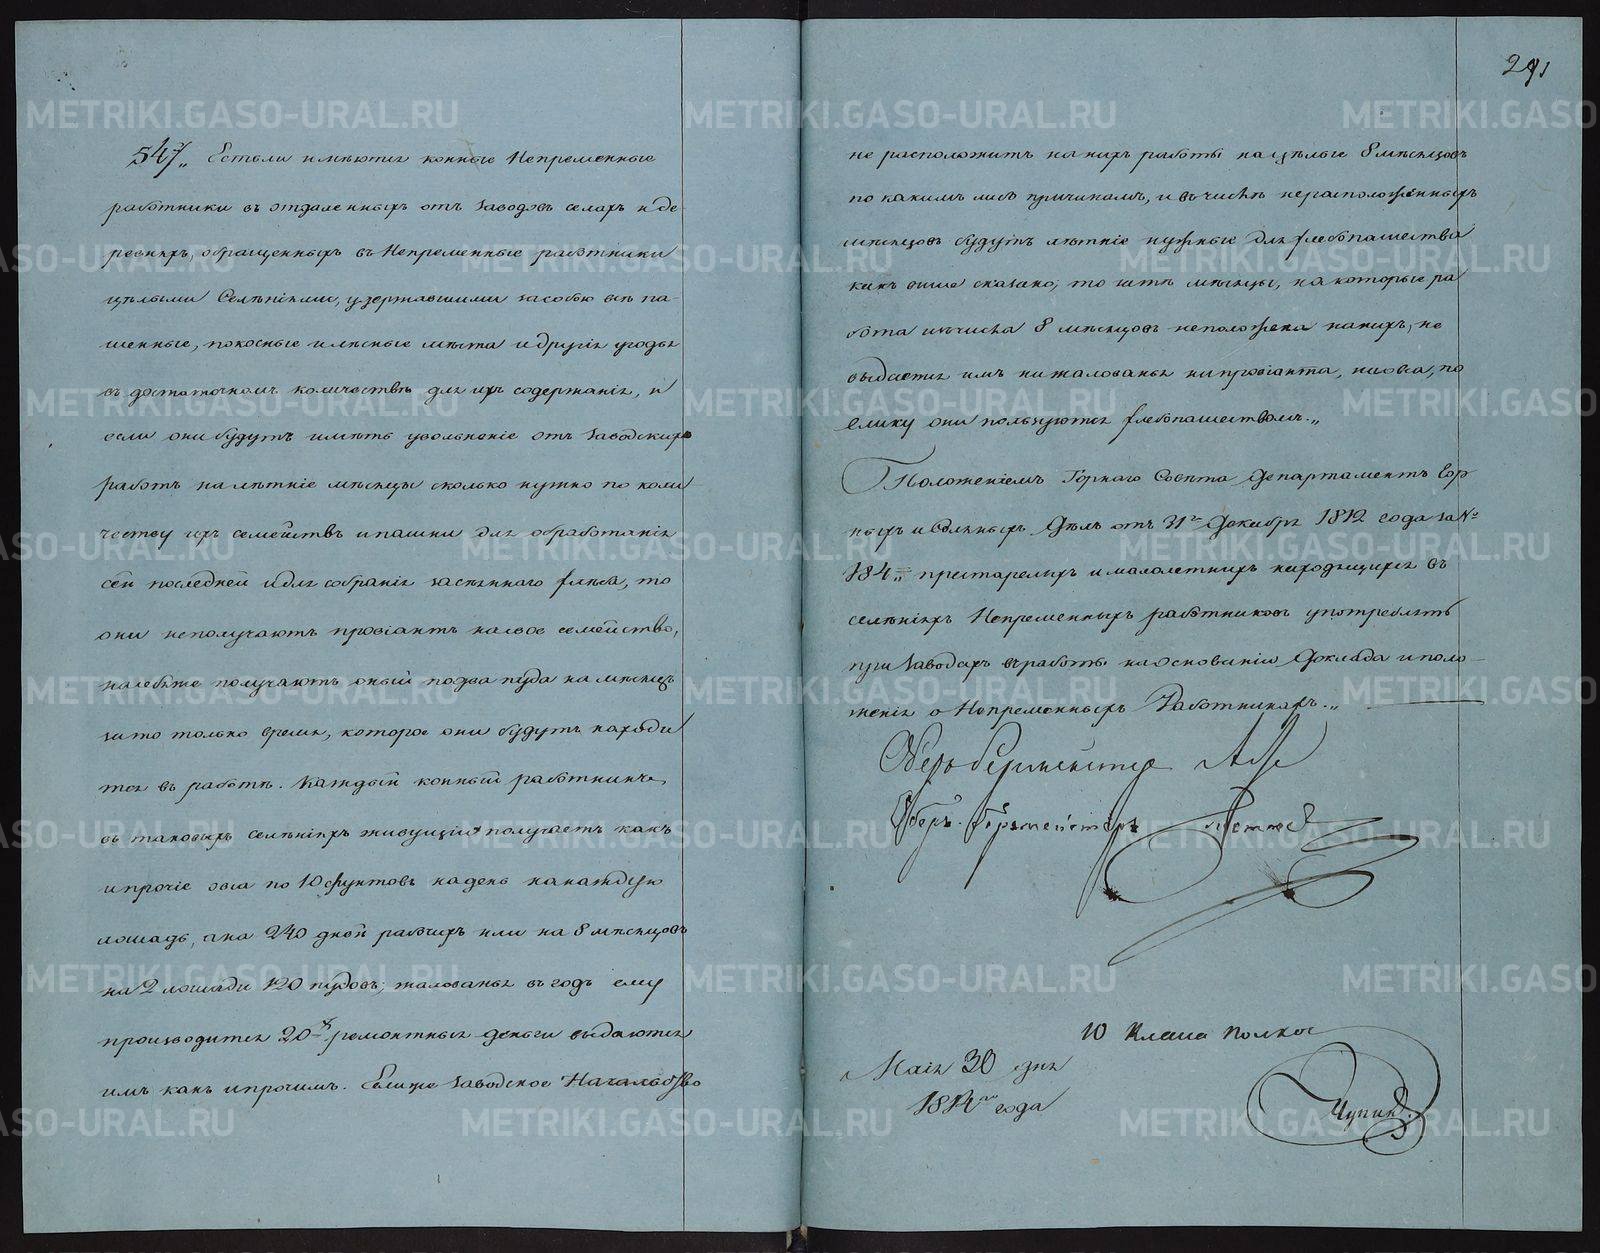 547., Естьли имѣются конные Непременные
работники въ отдаленныхъ отъ заводовъ селахъ и де-
ревняхъ, обращенныхъ въ Непременные работники
цѣлыми Селѣніями, удержавшими за собою всѣ па-
шенные, покосные и лѣсные мѣста и другіе угодья
въ достаточномъ количествѣ для ихъ содержанія, и
если они будутъ имѣть увольненіе отъ заводскихъ
работъ на лѣтніе мѣсяцы сколько нужно по коли-
честву ихъ семействъ и пашни для обработанія
сей последней и для собранія засѣяннаго хлѣба, то
они неполучаютъ провіантъ на свое семейство,
на себя же получаютъ оный по два пуда на мѣсяцъ
за то только время, которое они будутъ находи
тся въ работѣ. Каждый конный работникъ,
въ таковыхъ селѣніяхъ живущій получаетъ какъ
и прочіе овса по 10 фунтовъ на день на каждую
лошадь, а на 240 дней рабочихъ или на 8 мѣсяцовъ
на 2 лошади 120 пудовъ; жалованья въ годъ ему
производится 20 ремонтныя деньги выдаются
имъ какъ и прочимъ. Если же заводское Начальство
291
не расположитъ на нихъ работы на цѣлые 8 мѣсяцовъ
по какимъ либо причинамъ, и въ числѣ нерасположенныхъ
мѣсяцовъ будутъ лѣтніе нужные для хлебопашества
какъ выше сказано, то за тѣ мѣсяцы, на которые ра
бота изъ числа 8 мѣсяцовъ неположена на нихъ, не
выдается имъ ни жалованья ни провіанта, ни овса, по
елику они пользуются хлебопашествомъ.,,
Положеніемъ Горнаго Совѣта Департаментъ Гор
ныхъ и Соляныхъ Дѣлъ отъ 31го Декабря 1812 года за №
184,, престарелыхъ и малолетнихъ находящихся въ
селѣніяхъ Непременныхъ работниковъ употреблять
при заводахъ въ работы на основаніи Доклада и поло-
женія о Непременныхъ Работникахъ.,,
Оберъ берггмейстеръ
Оберъ-бергмейстеръ
10 Класа
Маія 30 дня
1814го года
Чупинъ
METRIKI.GASO-URAL.RU